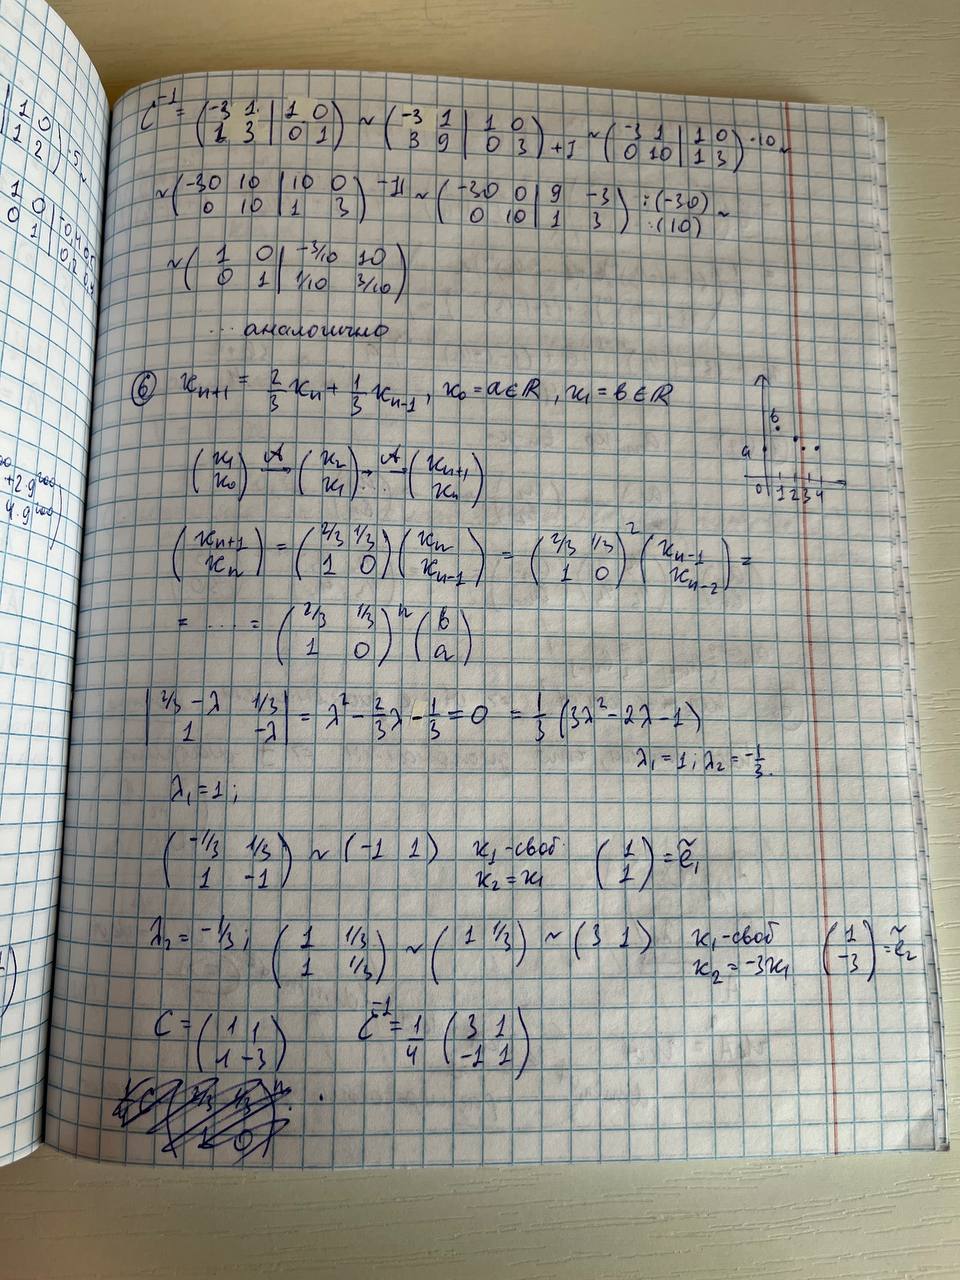 C⁻¹ = (-3 1 | 1 0 ; 1 3 | 0 1) ~ (-3 1 | 1 0 ; 3 9 | 0 3) +I ~ (-3 1 | 1 0 ; 0 10 | 1 3) ·10 ~
~ (-30 10 | 10 0 ; 0 10 | 1 3) -II ~ (-30 0 | 9 -3 ; 0 10 | 1 3) :(-30) :(10) ~
~ (1 0 | -3/10 10 ; 0 1 | 1/10 3/10)
... аналогично
⑥ xₙ₊₁ = 2/3 xₙ + 1/3 xₙ₋₁, x₀ = a ∈ ℝ, x₁ = b ∈ ℝ
b
a
0 1 2 3 4
(x₁ ; x₀) →A (x₂ ; x₁) → ... →A (xₙ₊₁ ; xₙ)
(xₙ₊₁ ; xₙ) = (2/3 1/3 ; 1 0) (xₙ ; xₙ₋₁) = (2/3 1/3 ; 1 0)² (xₙ₋₁ ; xₙ₋₂) =
= .... = (2/3 1/3 ; 1 0)ⁿ (b ; a)
|2/3 - λ 1/3 ; 1 -λ| = λ² - 2/3 λ - 1/3 = 0 = 1/3 (3λ² - 2λ - 1)
λ₁ = 1; λ₂ = -1/3.
λ₁ = 1;
(-1/3 1/3 ; 1 -1) ~ (-1 1) x₁ - своб. x₂ = x₁ (1 ; 1) = ẽ₁
λ₂ = -1/3; (1 1/3 ; 1 1/3) ~ (1 1/3) ~ (3 1) x₁ - своб x₂ = -3x₁ (1 ; -3) = ẽ₂
C = (1 1 ; 1 -3) C⁻¹ = 1/4 (3 1 ; -1 1)